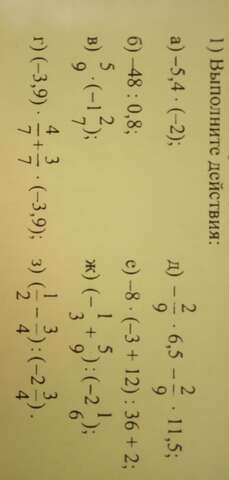 1) Выполните действия:
а) –5,4 · (–2);
б) –48 : 0,8;
в) 5/9 · (–1 2/7);
г) (–3,9) · 4/7 + 3/7 · (–3,9);
д) – 2/9 · 6,5 – 2/9 · 11,5;
е) –8 · (–3 + 12) : 36 + 2;
ж) (– 1/3 + 5/9) : (–2 1/6);
з) (1/2 – 3/4) : (–2 3/4).